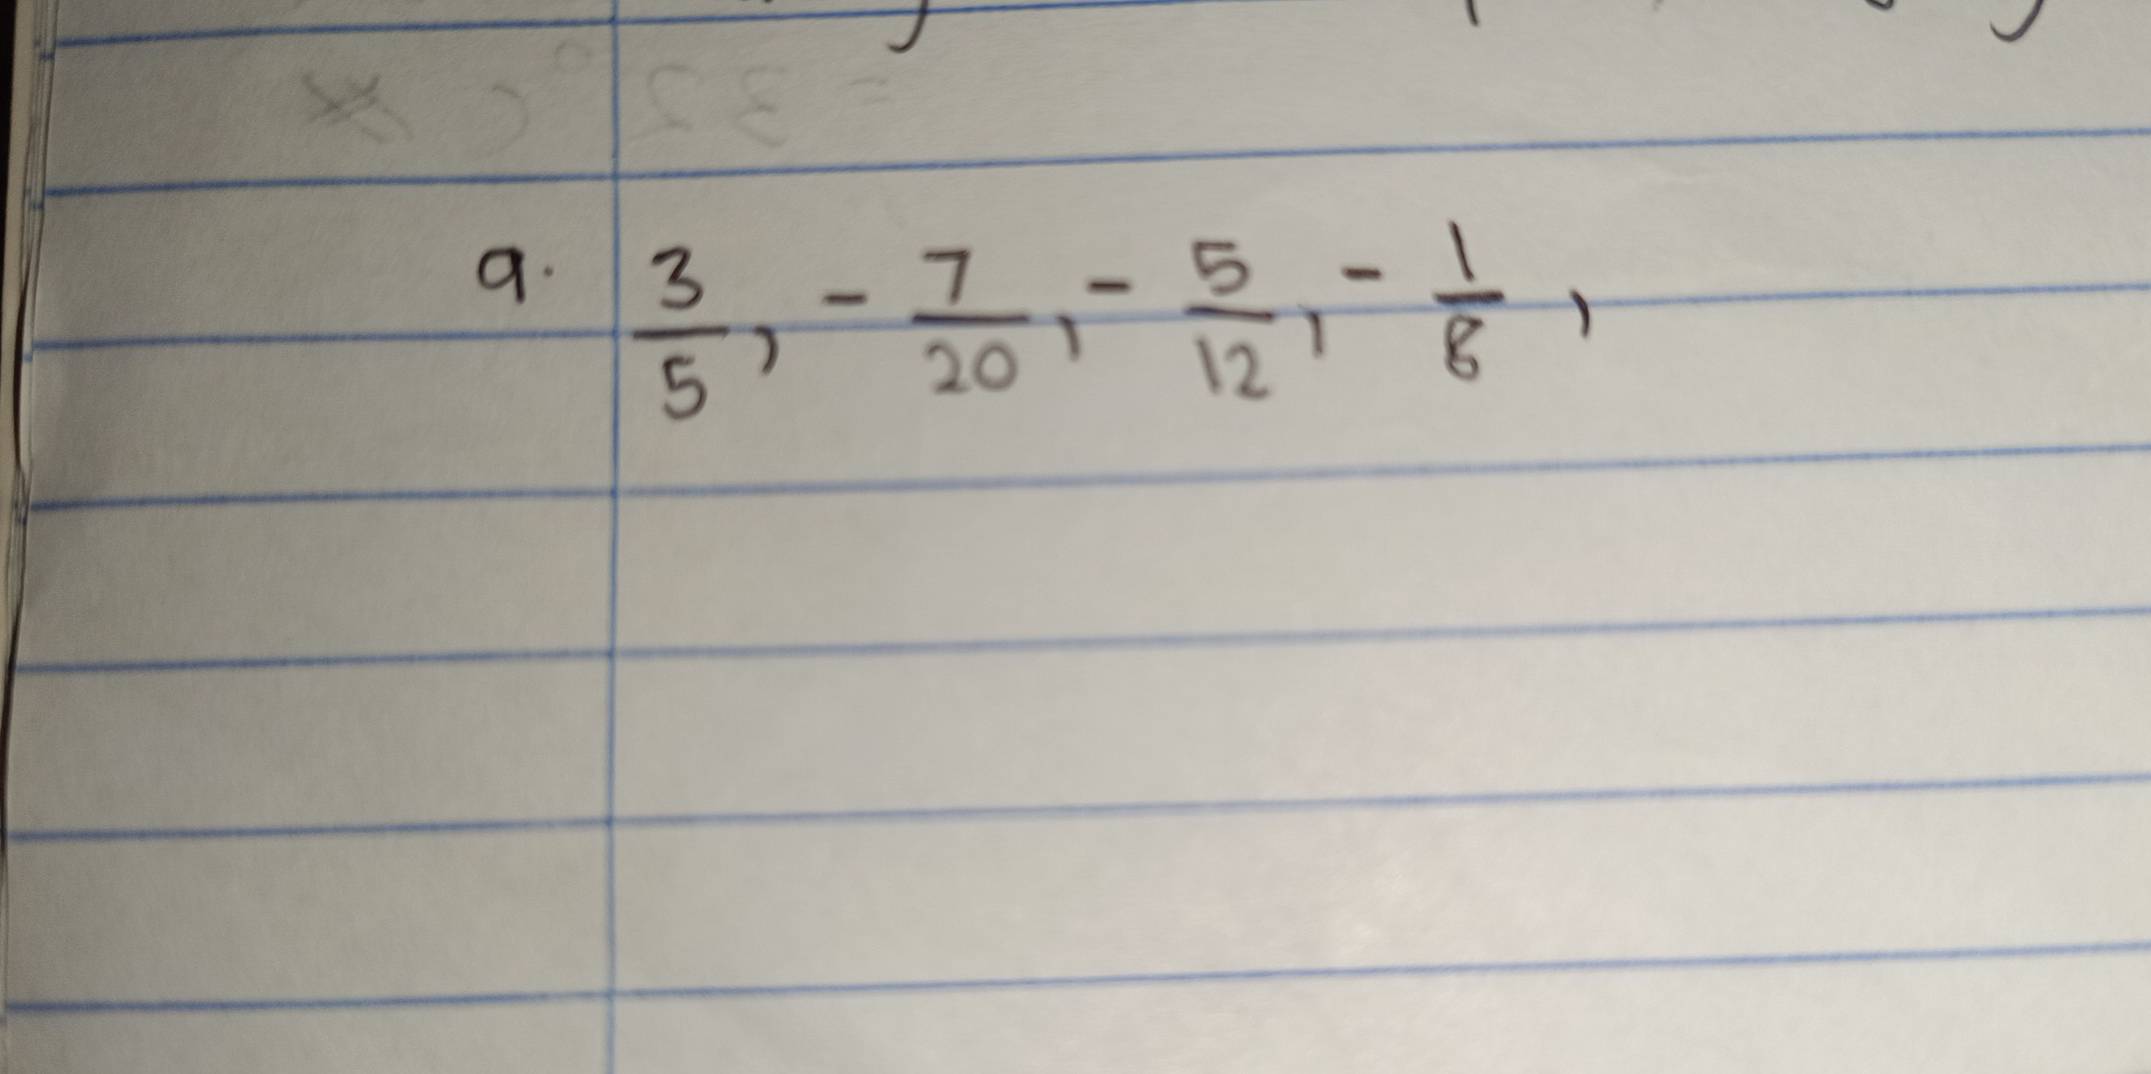 9. 3/5, - 7/20, - 5/12, - 1/8,